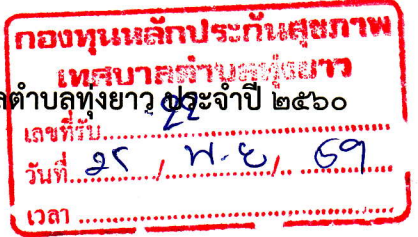 กองทุนหลักประกันสุขภาพ
เทศบาลตำบลทุ่งยาว
ลตำบลทุ่งยาว ประจำปี ๒๕๖๐
เลขที่รับ..............................
วันที่........../. พ.ย /. 59
เวลา ..............................